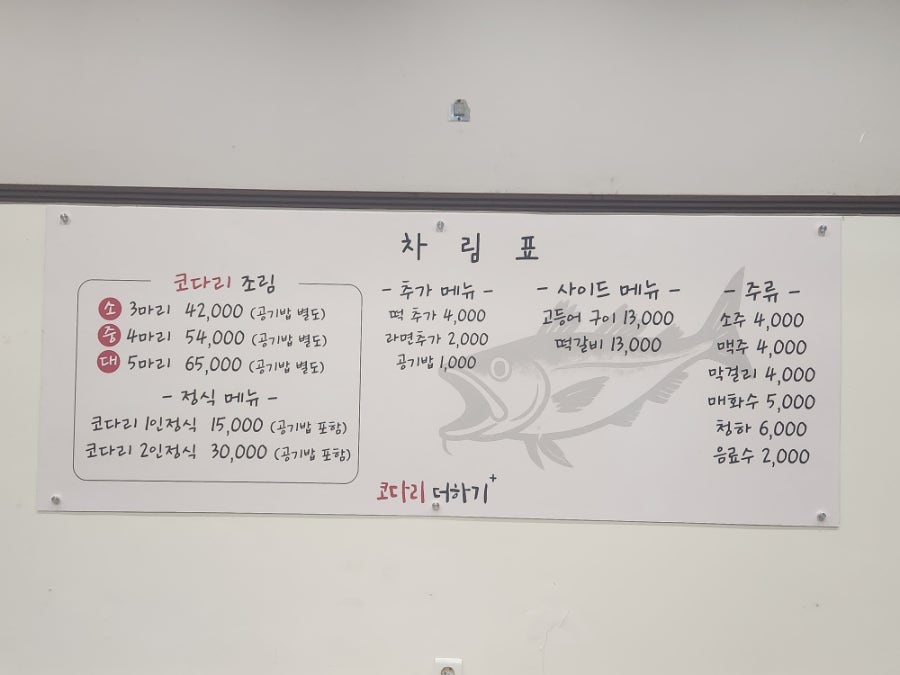 차 림 표
코다리 조림
소 3마리 42,000 (공기밥 별도)
중 4마리 54,000 (공기밥 별도)
대 5마리 65,000 (공기밥 별도)
- 정식 메뉴 -
코다리 1인정식 15,000 (공기밥 포함)
코다리 2인정식 30,000 (공기밥 포함)
- 추가 메뉴 -
떡 추가 4,000
라면추가 2,000
공기밥 1,000
- 사이드 메뉴 -
고등어 구이 13,000
떡갈비 13,000
- 주류 -
소주 4,000
맥주 4,000
막걸리 4,000
매화수 5,000
청하 6,000
음료수 2,000
코다리 더하기+